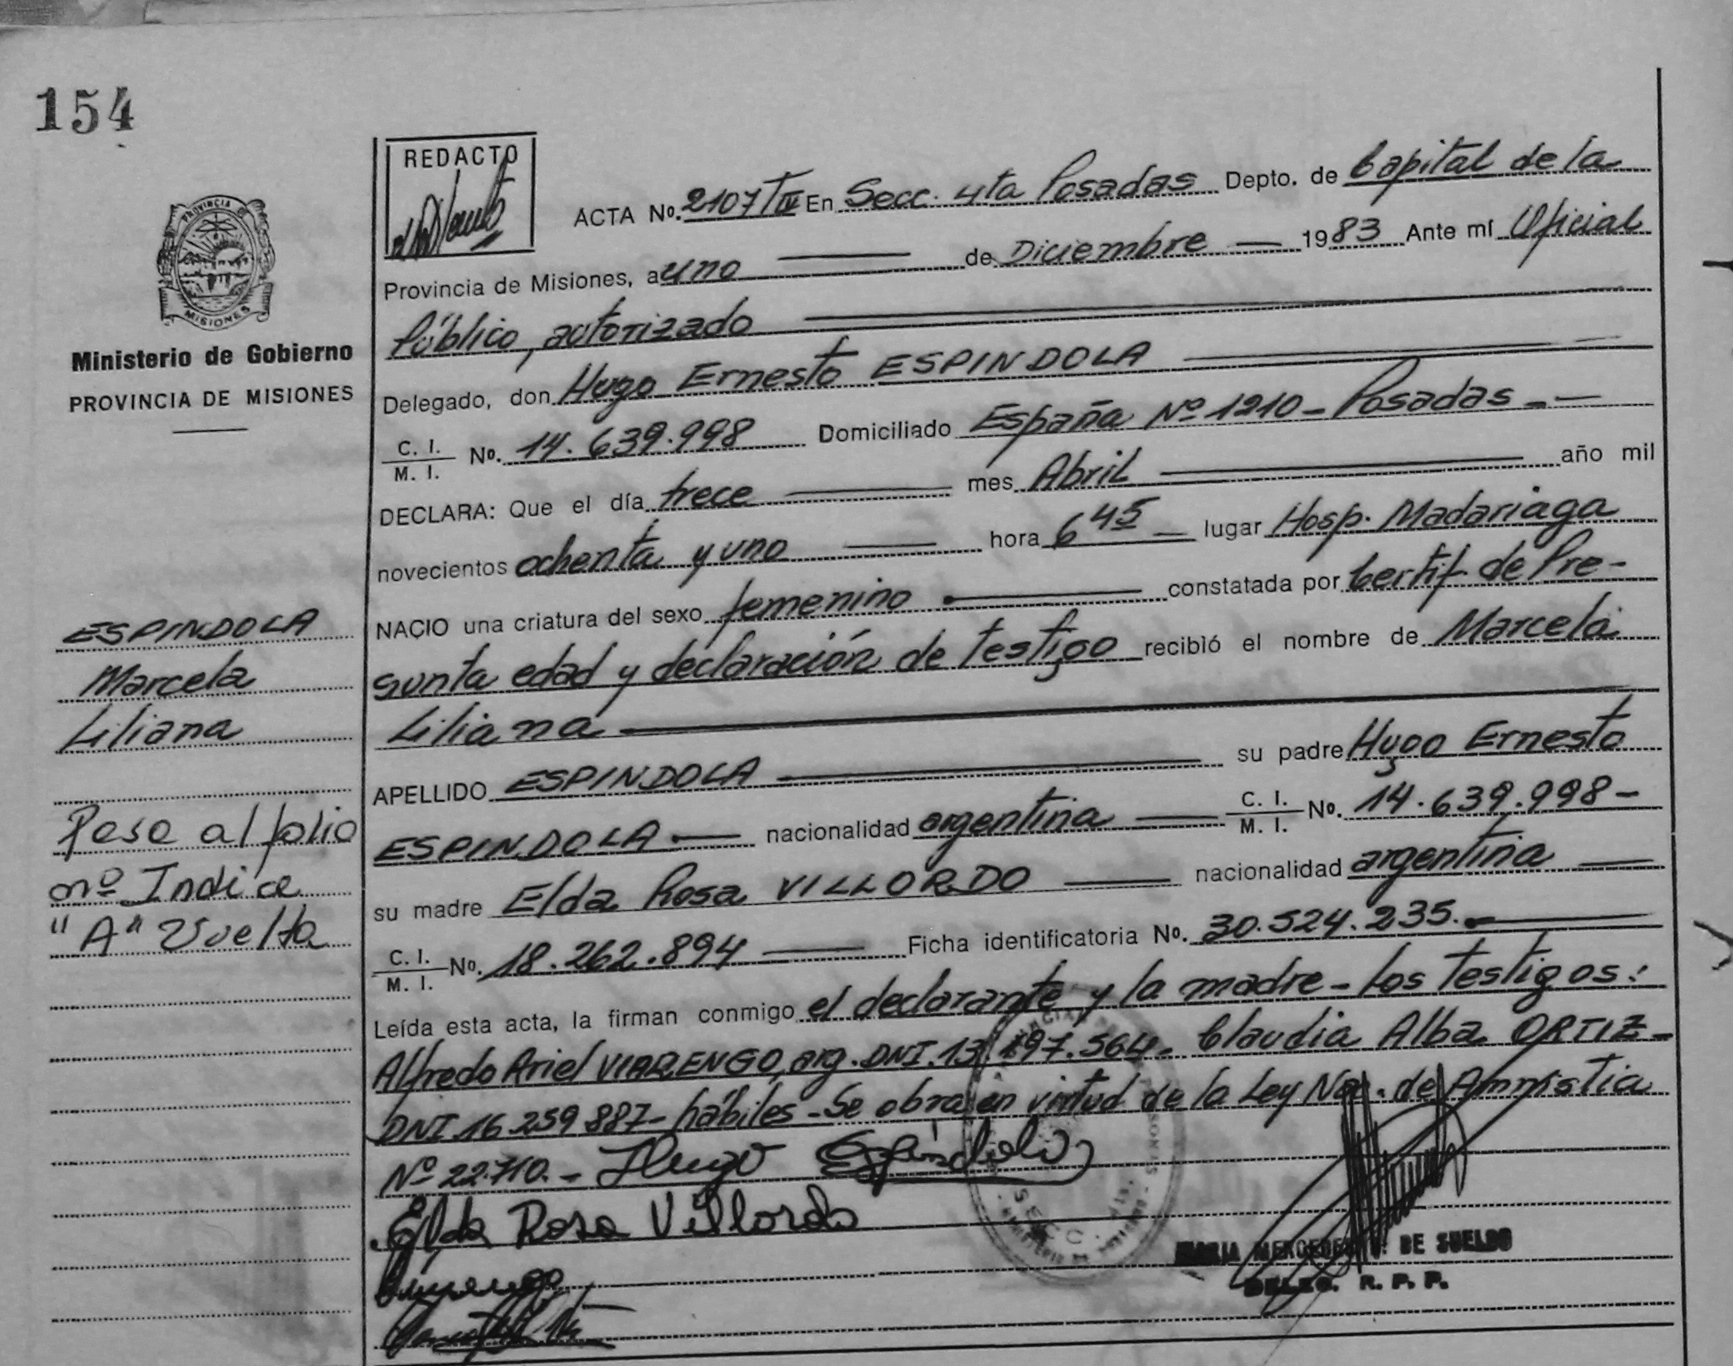 154
REDACTO
ACTA No. 2107 T IV En Secc. 4ta Posadas Depto. de Capital de la
Provincia de Misiones, a uno de Diciembre 1983 Ante mí Oficial
Público, autorizado
Delegado, don Hugo Ernesto ESPINDOLA
C. I. / M. I. No. 14.639.998 Domiciliado España Nº 1210 - Posadas - -
DECLARA: Que el día trece mes Abril año mil
novecientos ochenta y uno hora 6 45 lugar Hosp. Madariaga
NACIO una criatura del sexo femenino constatada por Certif de Pre-
sunta edad y declaración de testigo recibió el nombre de Marcela
Liliana
APELLIDO ESPINDOLA su padre Hugo Ernesto
ESPINDOLA nacionalidad argentina C. I. / M. I. No. 14.639.998-
su madre Elda Rosa VILLORDO nacionalidad argentina
C. I. / M. I. No. 18.262.894 Ficha identificatoria No. 30.524.235.
Leída esta acta, la firman conmigo el declarante y la madre - los testigos:
Alfredo Ariel VIARENGO, arg. DNI. 13.197.564- Claudia Alba ORTIZ-
DNI 16.259.887- hábiles - Se obra en virtud de la Ley Nac. de Amnistia
Nº 22.710. - Hugo Espíndola
Elda Rosa Villordo
MARIA MERCEDES DE SUELDO
DELEG. R. P. P.
PROVINCIA DE
MISIONES
Ministerio de Gobierno
PROVINCIA DE MISIONES
ESPINDOLA
Marcela
Liliana
Pase al folio
nº Indice
"A" Vuelta
SECC.